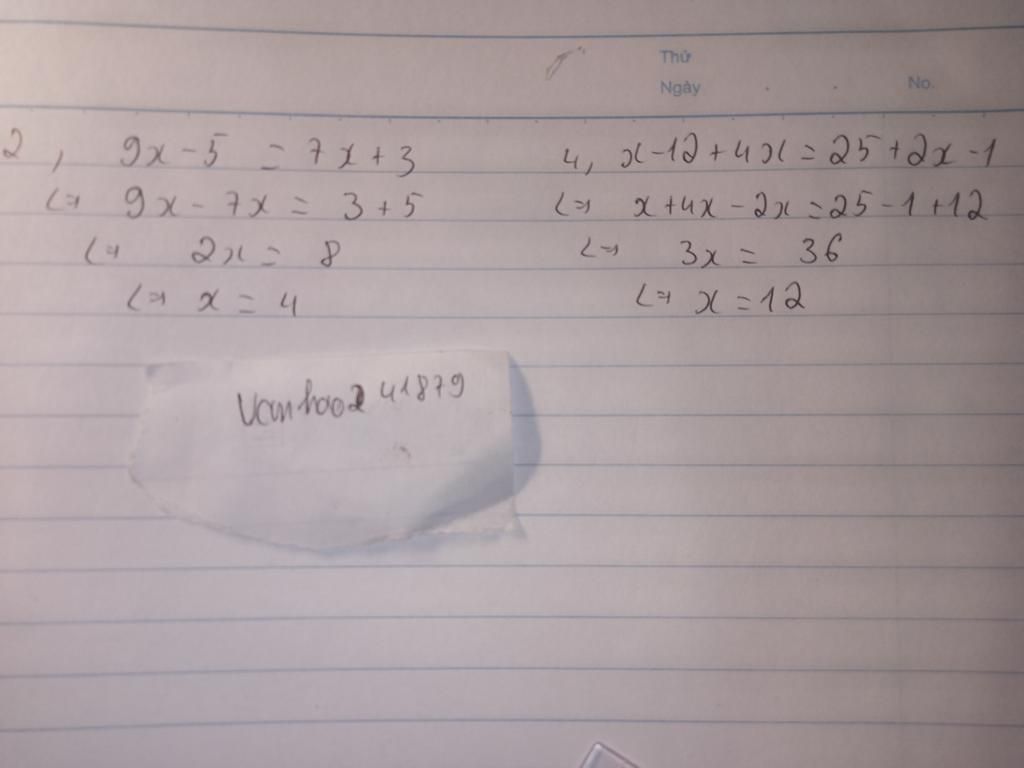 Thứ
Ngày No.
2, 9x - 5 = 7x + 3
<=> 9x - 7x = 3 + 5
<=> 2x = 8
<=> x = 4
4, x - 12 + 4x = 25 + 2x - 1
<=> x + 4x - 2x = 25 - 1 + 12
<=> 3x = 36
<=> x = 12
vanhao241879